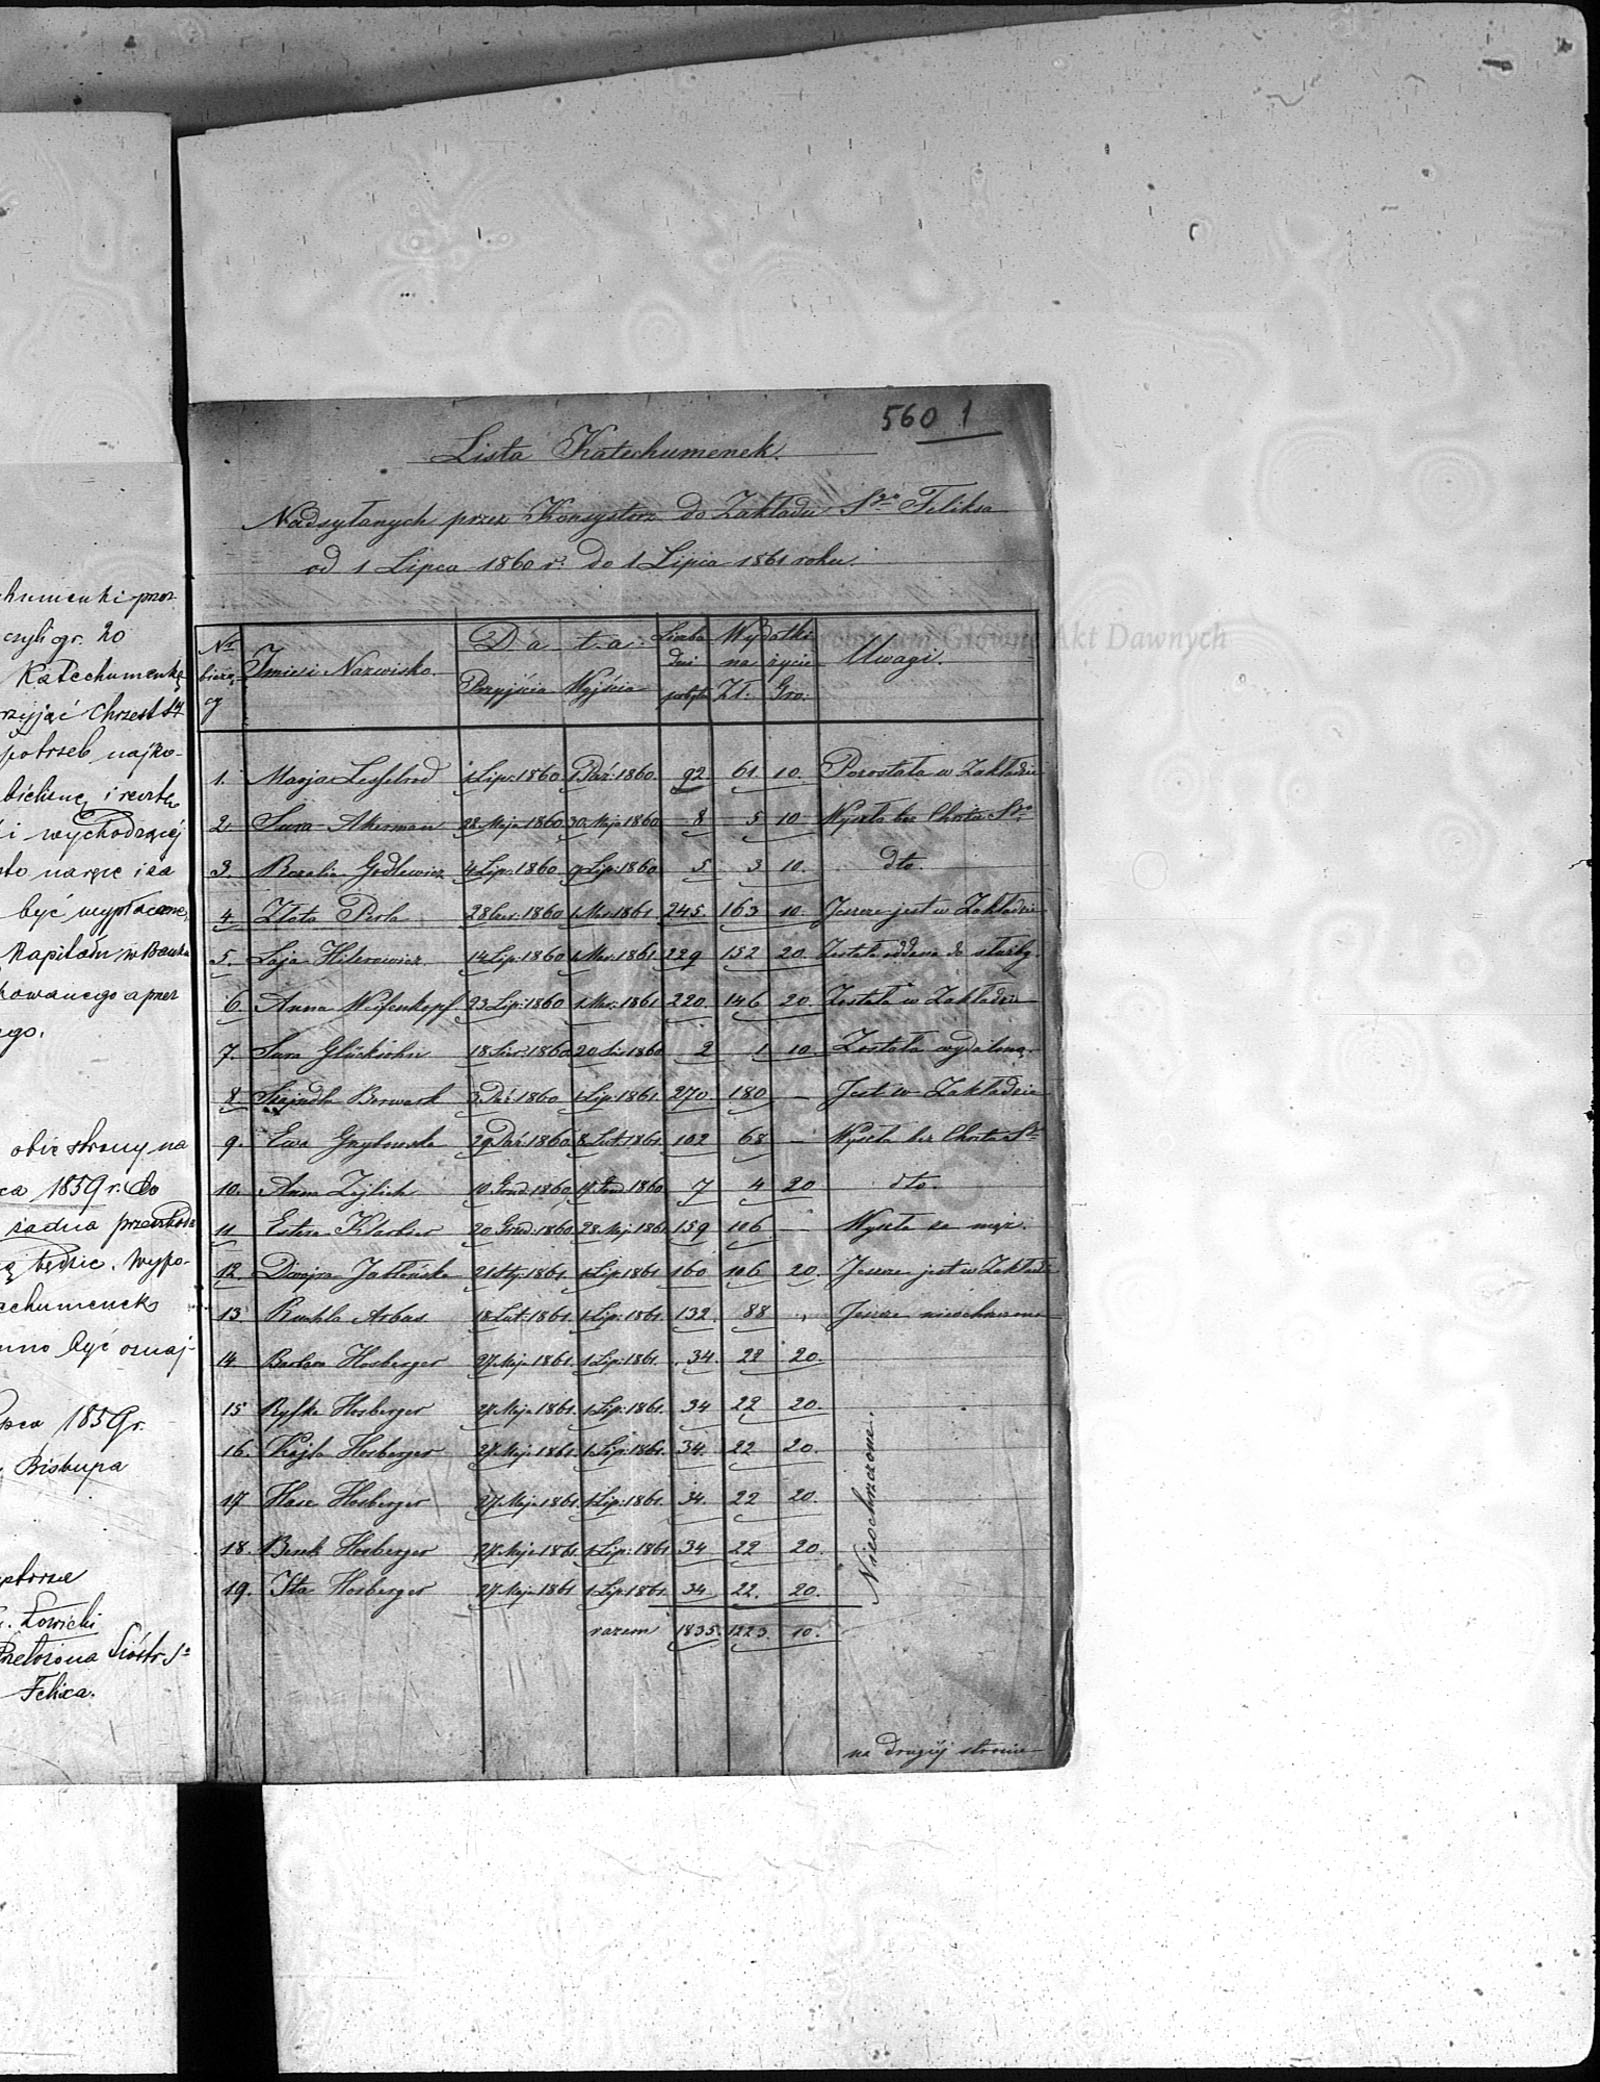 560 1
Lista Katechumenek.
Nadsyłanych przez Konsystorz do Zakładu Sgo Feliksa
od 1 Lipca 1860 r. do 1 Lipca 1861 roku.
Archiwum Główne Akt Dawnych
Nr bieżący Imie i Nazwisko. Data Przyjścia Wyjścia Liczba dni pobytu Wydatki na życie Zł. Gro. Uwagi.
1. Marja Lesselrod 1 Lip: 1860 1 Paź: 1860. 92. 61. 10. Pozostała w Zakładzie
2. Sura Akerman 28. Maja 1860 30. Maja 1860 8 5 10 Wyszła bez Chrztu Sgo
3. Rozalia Godlewicz 4 Lip: 1860 9 Lip: 1860 5. 3 10. dto.
4. Złata Perla 28 Czer: 1860 1 Mar: 1861 245. 163 10. Jeszcze jest w Zakładzie
5. Łaja Hilerowicz 14 Lip: 1860 1 Mar: 1861 229 152 20. Została oddana do służby.
6. Anna Weifenkopf 23 Lip: 1860 1 Mar: 1861 220. 146 20. Została w Zakładzie
7. Sura Glücksohn 18 Sier: 1860 20 Sier 1860 2 1 10. Została wydaloną.
8. Szejndla Berwark 3. Paź: 1860 1 Lip: 1861. 270 180 — Jest w Zakładzie
9. Ewa Grzybowska 29 Paź: 1860 8 Lut: 1861. 102 68 — Wyszła bez Chrztu Sgo
10. Anna Zejlich 10. Grud: 1860 17. Grud 1860 7 4 20 dto.
11 Estera Klarbier 20 Grud: 1860 28. Maj: 1861 159 106 — Wyszła za mąż.
12. Dwojra Jabłońska 21 Sty: 1861. 1 Lip: 1861 160 106 20. Jeszcze jest w Zakładz
13. Ruchla Arbus 18 Lut: 1861. 1 Lip: 1861. 132. 88 „ Jeszcze nieochrzczona
14 Barbara Hosberger 27 Maja 1861. 1 Lip: 1861. 34. 22 20.
15 Ryfka Hosberger 27 Maja 1861. 1 Lip: 1861. 34 22 20.
16. Fajla Hosberger 27. Maja 1861. 1 Lip: 1861. 34. 22 20.
17 Hase Hosberger 27. Maja 1861. 1 Lip: 1861. 34. 22 20.
18. Berek Hosberger 27 Maja 1861. 1 Lip: 1861 34 22 20.
19. Ita Hosberger 27 Maja 1861 1 Lip: 1861. 34 22. 20.
Nieochrzczone.
razem 1835. 1223. 10.
na drugiej stronie
chumenki przez
czyli gr. 20
Katechumenkę
przyjąć Chrzest Sty
potrzeb najko-
bieliznę i
i wychodzącej
to na ręce i za
być wypłacone,
Kapitału w Banku
kowanego a przez
ego.
obie strony na
ca 1859 r. do
żadna przeszkoda
będzie. Wypo-
echumenek
nno być oznaj-
pca 1859 r.
Biskupa
Łowicki
Przełożona Sióstr S
Felixa.